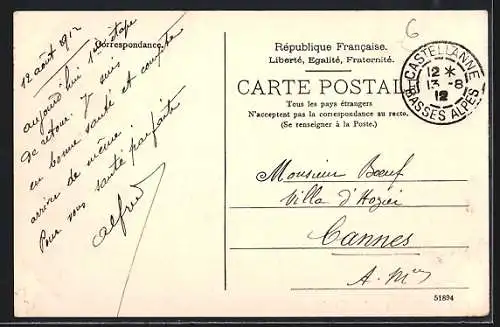 12 août 912
Correspondance.
aujourd'hui 1re étape
de retour. Je suis
en bonne santé et compte
arriver de même
Pour vous santé parfaite
Alfred
6
République Française.
Liberté, Egalité, Fraternité.
CARTE POSTALE
Tous les pays étrangers
N'acceptent pas la correspondance au recto.
(Se renseigner à la Poste.)
CASTELLANNE
12 *
13 - 8
12
BASSES ALPES
Monsieur Bœuf
Villa d'Hozier
Cannes
A. Mmes
51894